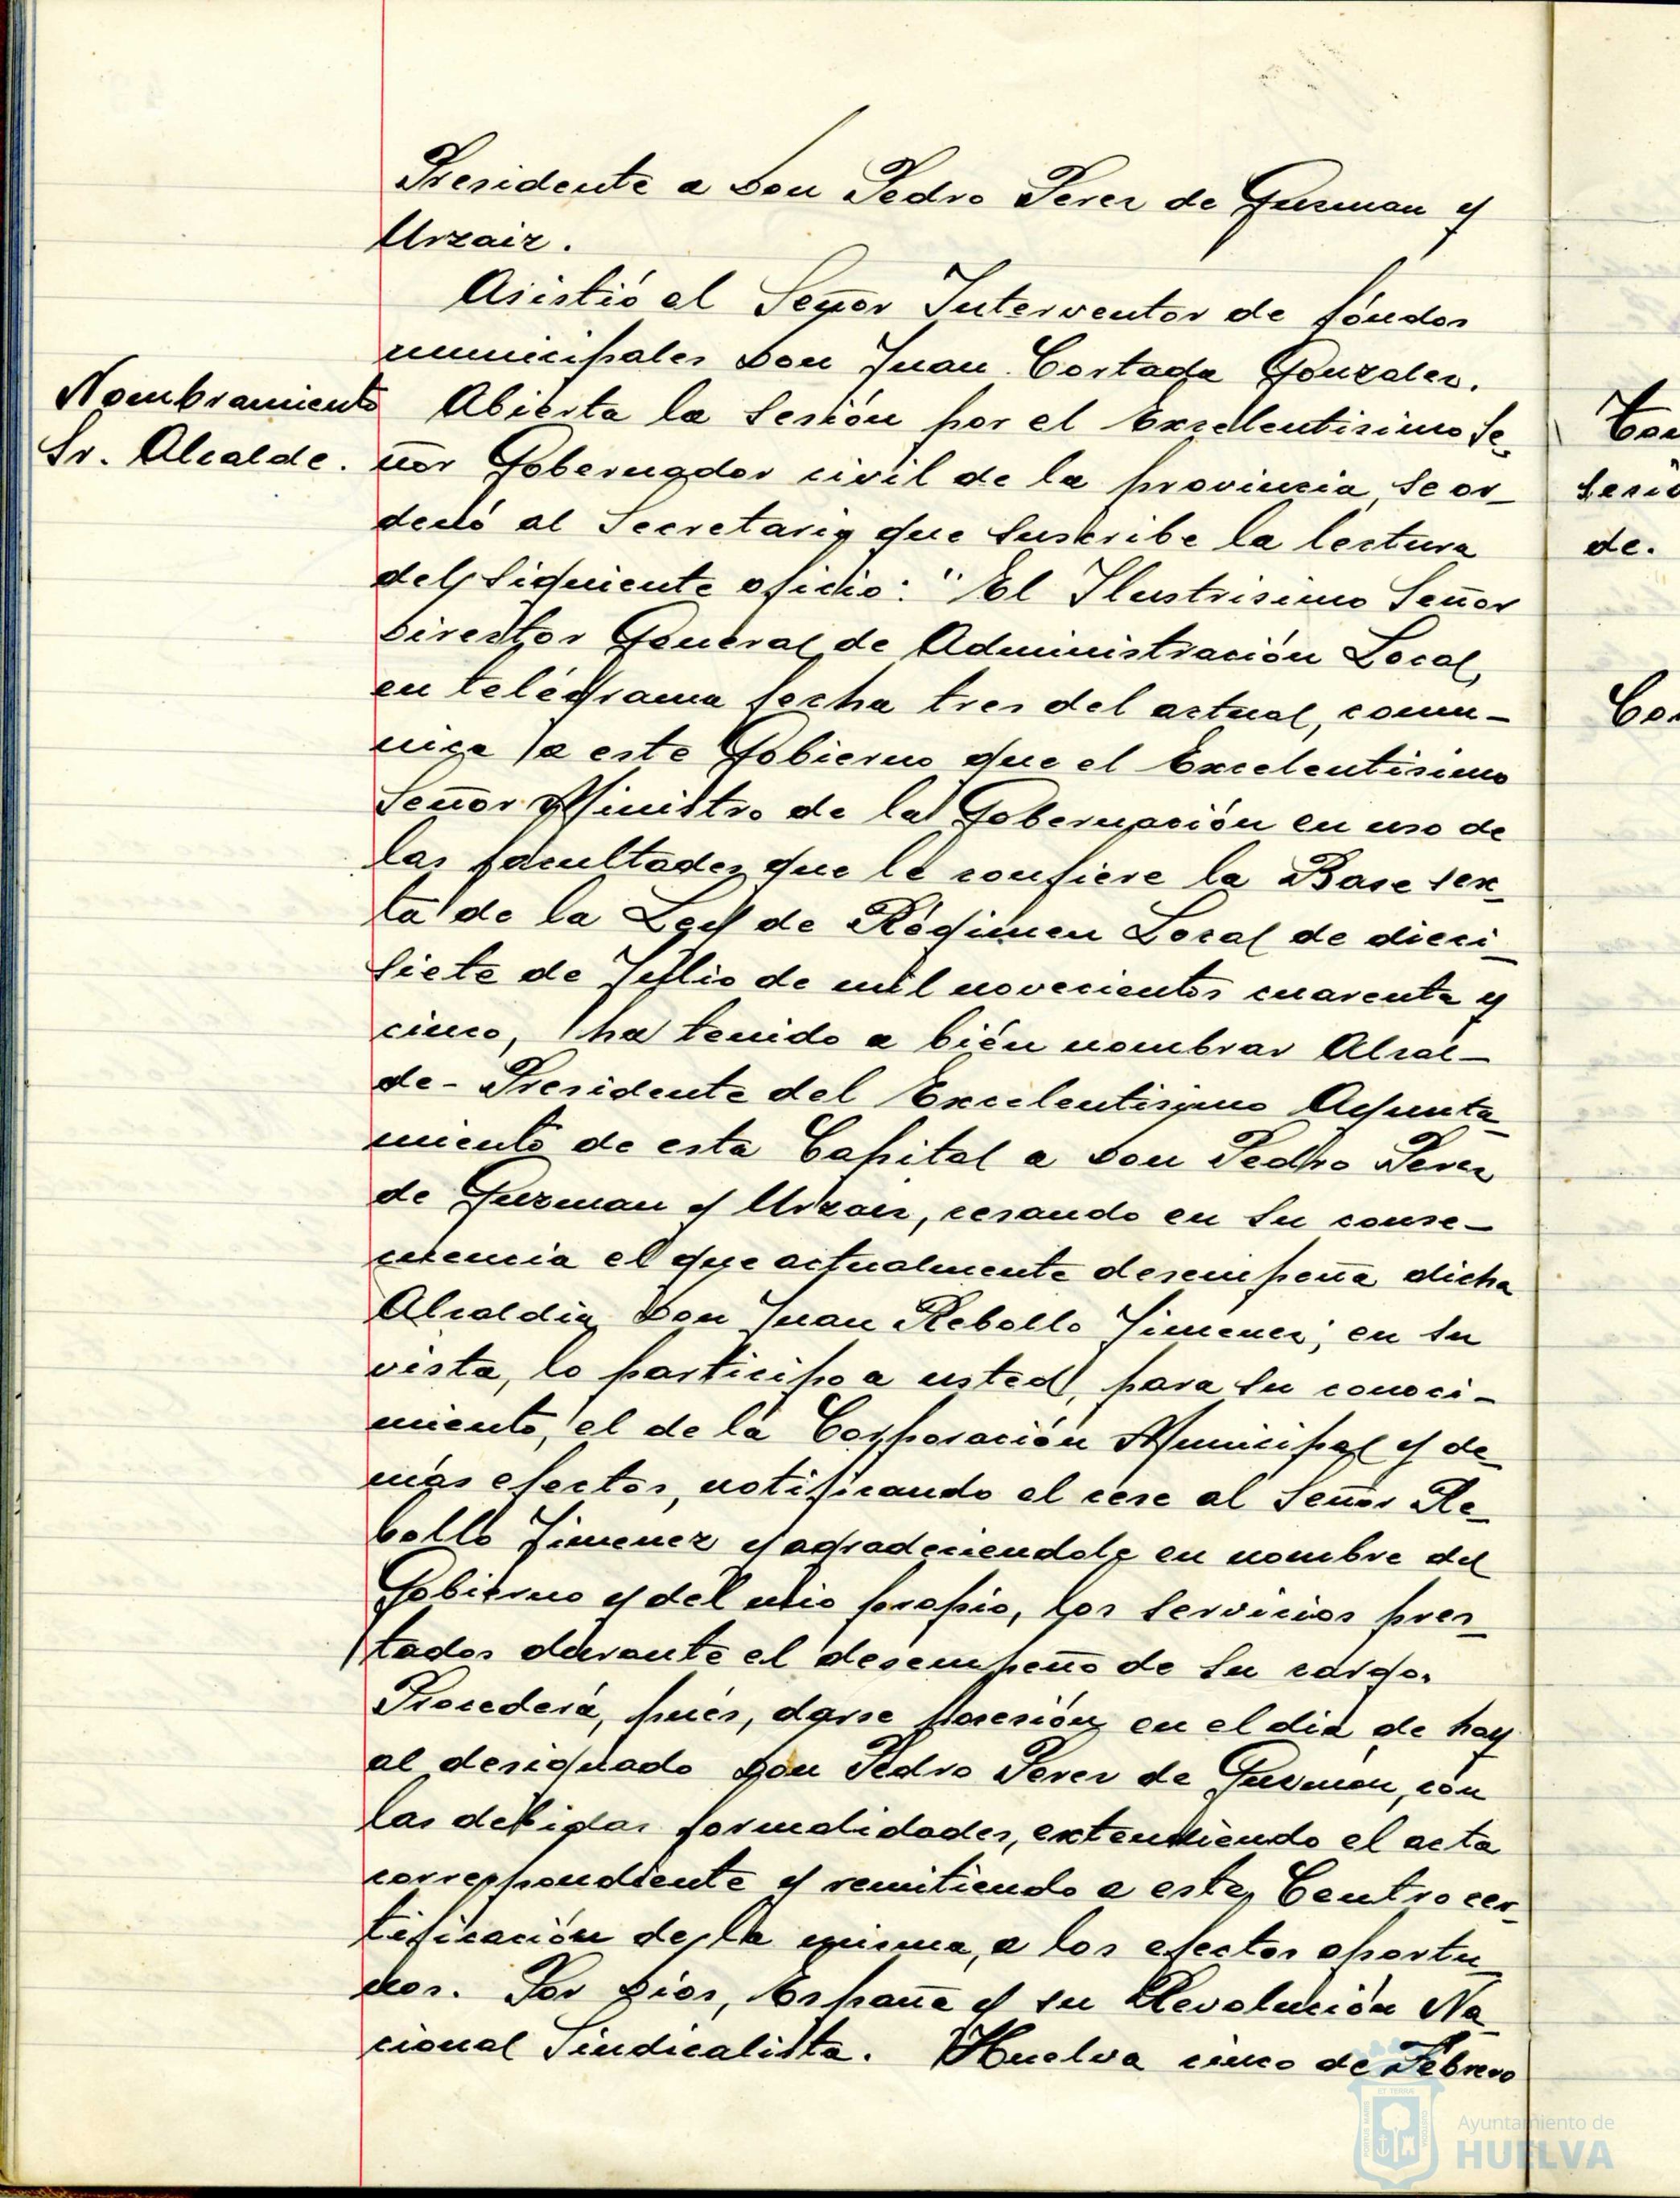 Presidente a Don Pedro Perez de Guzman y
Urzaiz.
Asistió el Señor Interventor de fóndos
municipales Don Juan Cortada Gonzalez.
Nombramiento
Sr. Alcalde.
Abierta la Sesión por el Excelentisimo Se-
ñor Gobernador civil de la provincia, se or-
denó al Secretario que suscribe la lectura
del siguiente oficio: "El Ilustrisimo Señor
Director General de Administración Local,
en telégrama fecha tres del actual, comu-
nica a este Gobierno que el Excelentisimo
Señor Ministro de la Gobernación en uso de
las facultades que le confiere la Base sex-
ta de la Ley de Règimen Local de dieci-
siete de Julio de mil novecientos cuarenta y
cinco, ha tenido a bién nombrar Alcal-
de-Presidente del Excelentisimo Ayunta-
miento de esta Capital a Don Pedro Perez
de Guzman y Urzaiz, cesando en su conse-
cuencia el que actualmente desempeña dicha
Alcaldia Don Juan Rebollo Jimenez; en su
vista, lo participo a usted, para su conoci-
miento, el de la Corporación Municipal y de-
más efectos, notificando el cese al Señor Re-
bollo Jimenez y agradeciendole en nombre del
Gobierno y del mio propio, los servicios pres-
tados durante el desempeño de su cargo.
Procederá, pués, darse posesión en el dia de hoy
al designado Don Pedro Perez de Guzmán, con
las debidas formalidades, extendiendo el acta
correspondiente y remitiendo a este Centro cer-
tificación de la misma, a los efectos oportu-
nos. Por Dios, España y su Revolución Na-
cional Sindicalista. Huelva cinco de Febrero
sesió
de.
Ayuntamiento de
HUELVA